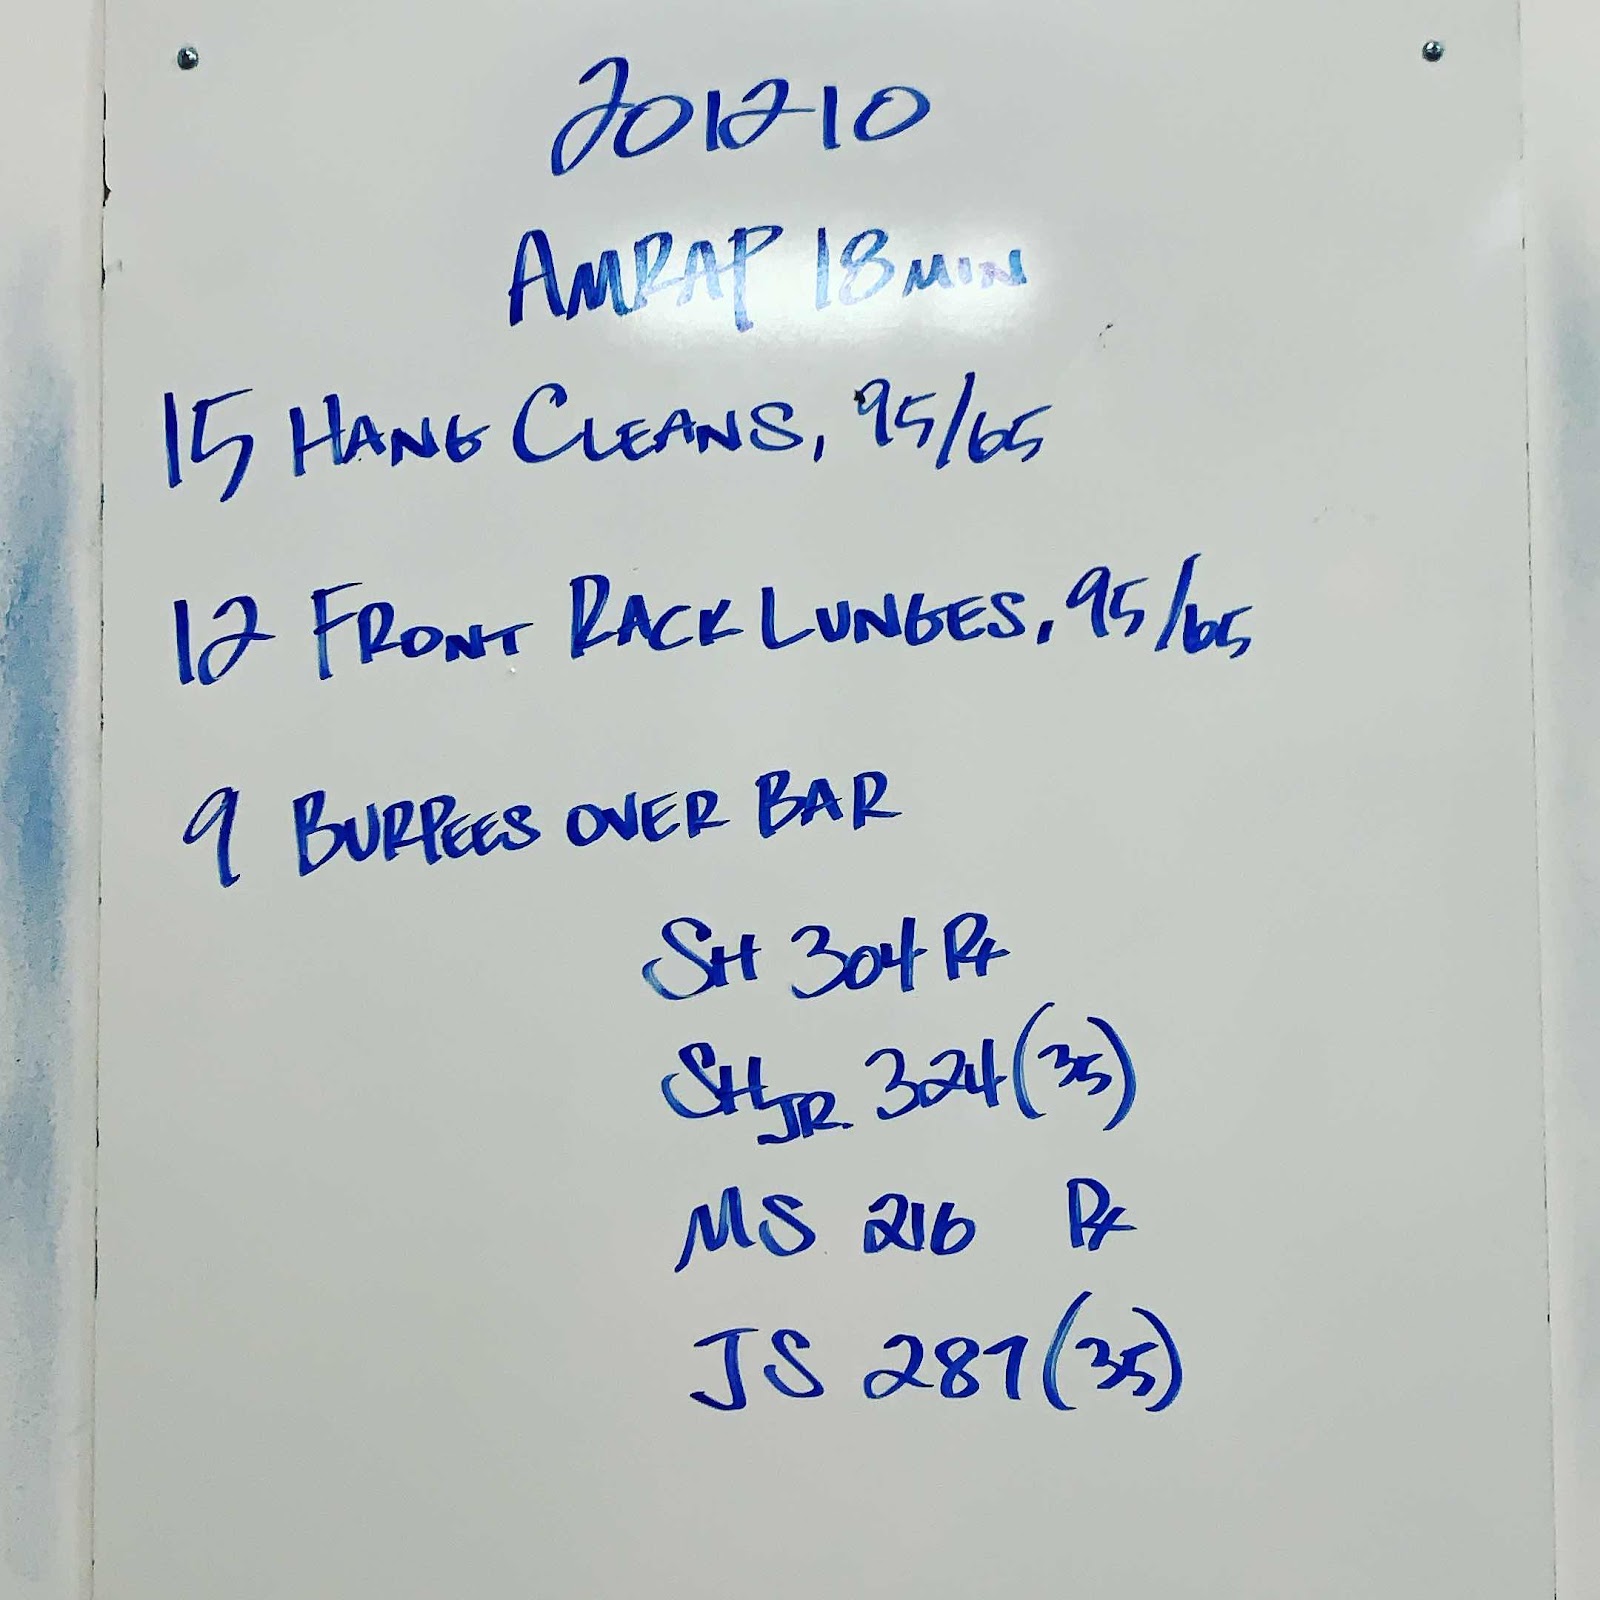 201210
AMRAP 18 MIN
15 HANG CLEANS, 95/65
12 FRONT RACK LUNGES, 95/65
9 BURPEES OVER BAR
SH 304 Rx
SH JR. 324 (35)
MS 216 Rx
JS 287 (35)